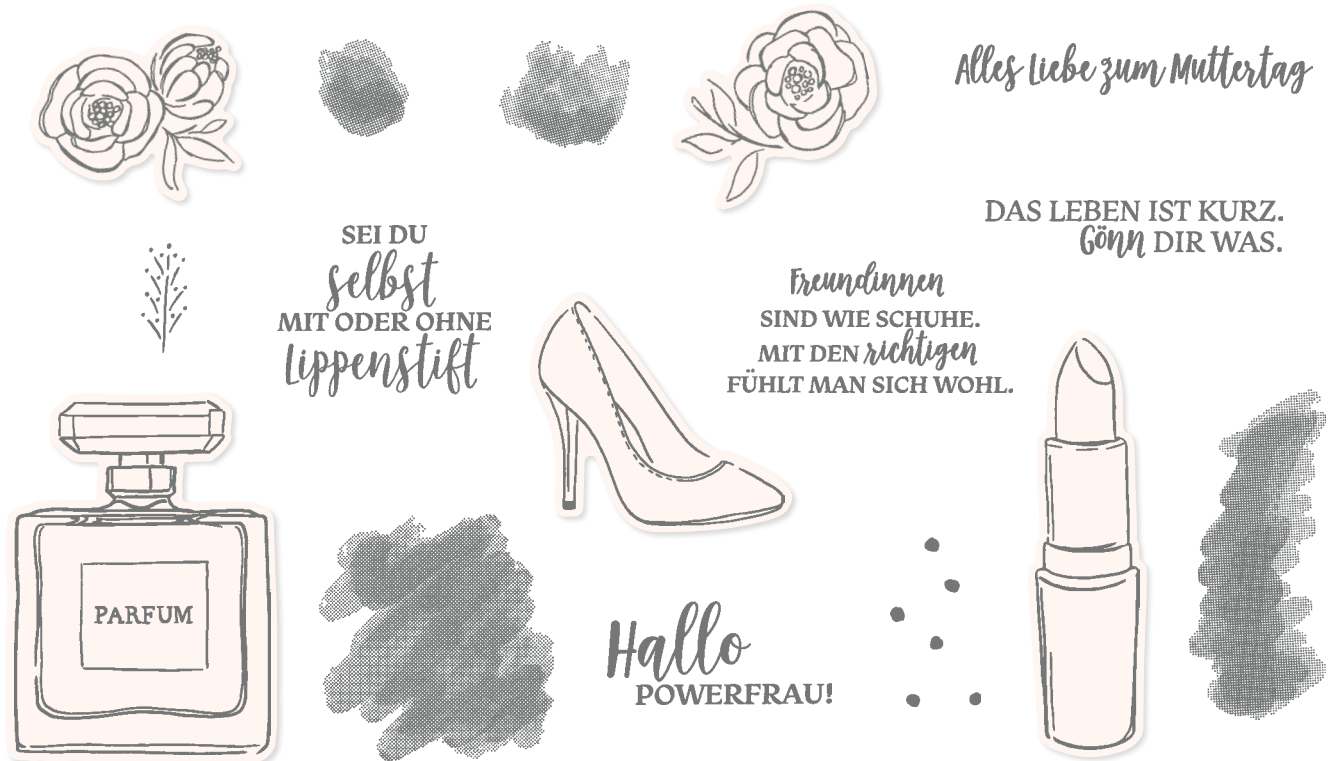 Alles Liebe zum Muttertag
DAS LEBEN IST KURZ.
Gönn DIR WAS.
SEI DU
selbst
MIT ODER OHNE
Lippenstift
Freundinnen
SIND WIE SCHUHE.
MIT DEN richtigen
FÜHLT MAN SICH WOHL.
PARFUM
Hallo
POWERFRAU!